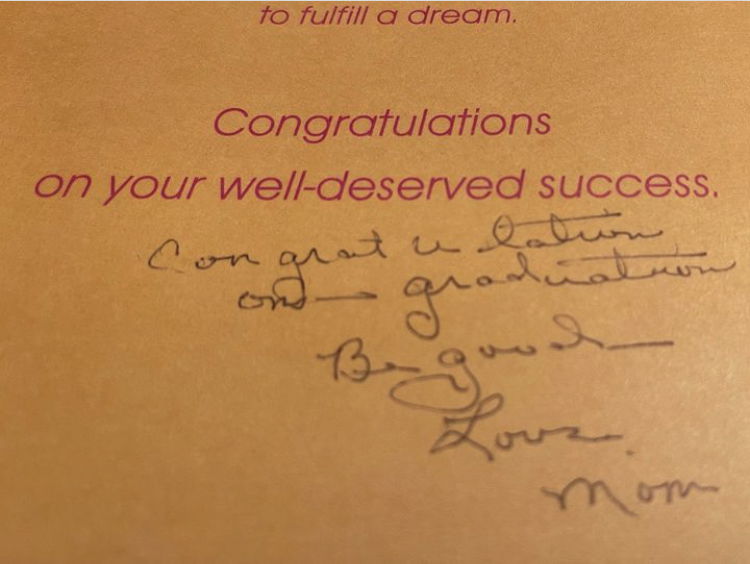 to fulfill a dream.
Congratulations
on your well-deserved success.
Congratulation
on graduation
Be good
Love
Mom